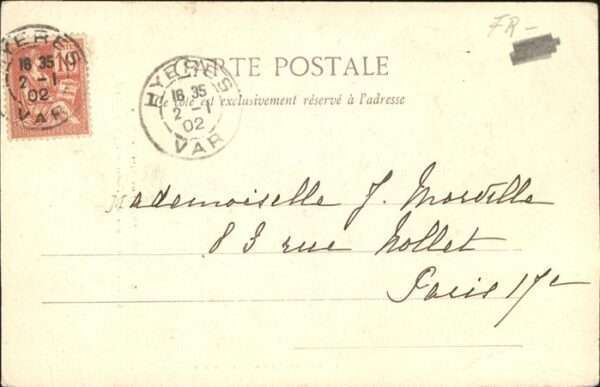 FR-
HYERES
18 35
2 - 1
02
VAR
10
HYERES
18 35
2 - 1
02
VAR
CARTE POSTALE
Ce côté est exclusivement réservé à l'adresse
Mademoiselle J. Morville
83 rue Nollet
Paris 17e